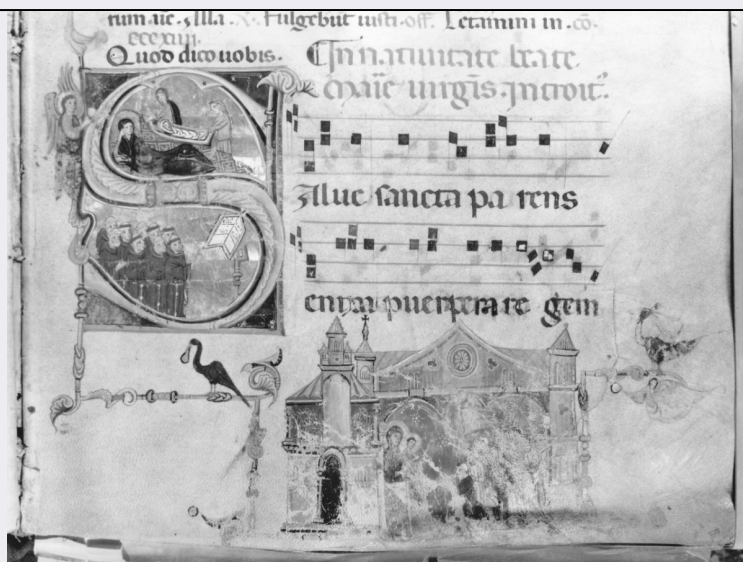 rum aue. ꝫ Illa. Fulgebūt iusti. off. Letamini in. cō.
ccc xiiij.
Quod dico uobis.
In natiuitate beate
Marie uirgīs. Introit.
Salue sancta parens
enixa puerpera regem